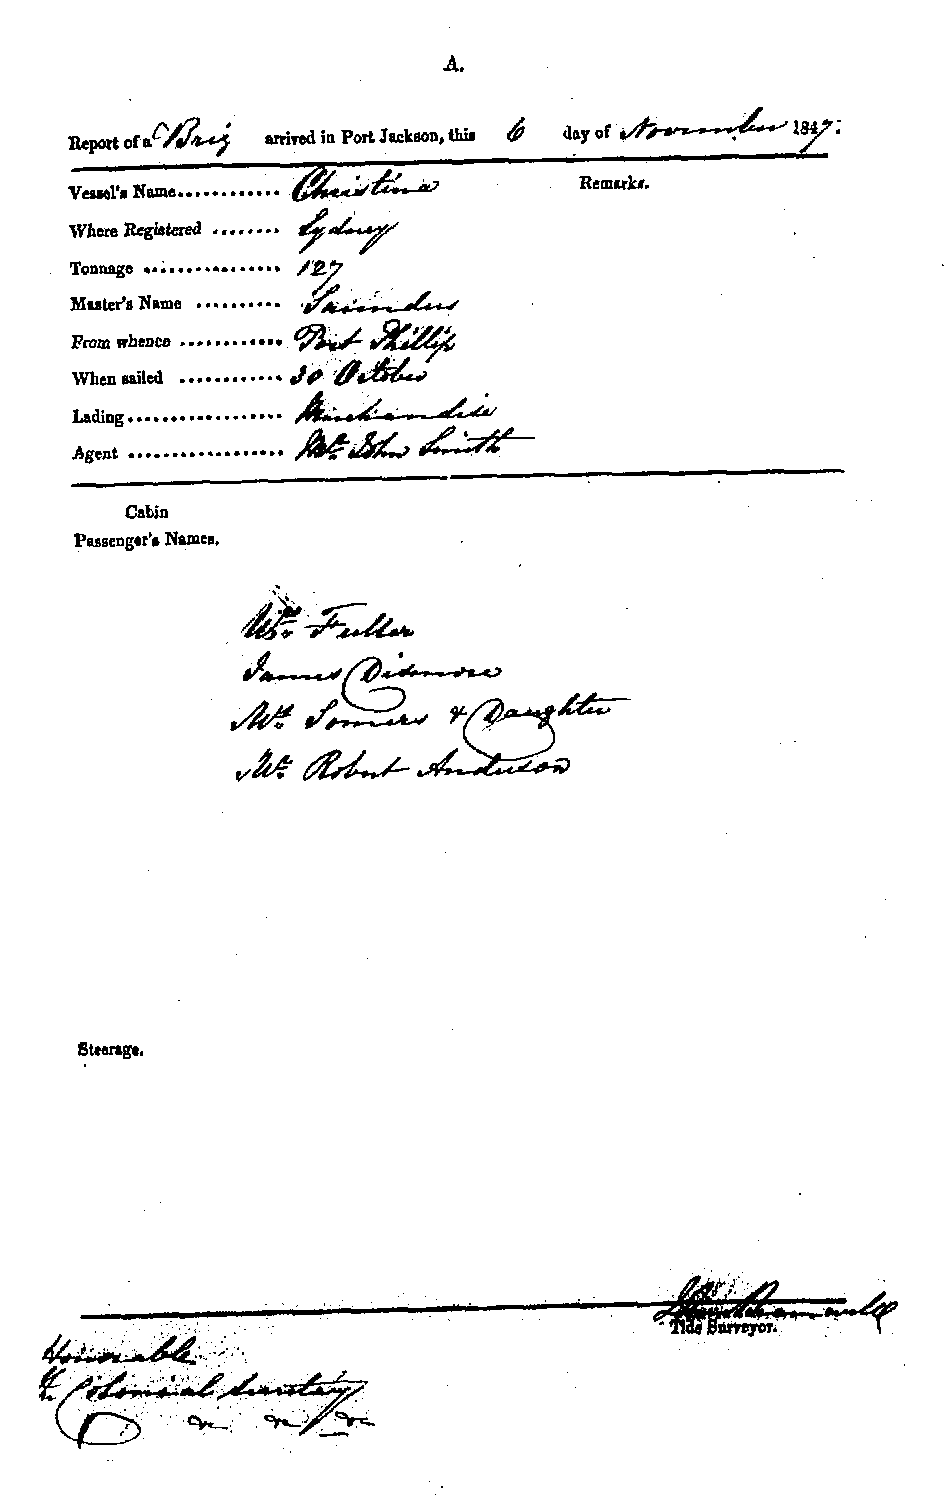 A.
Report of a Brig arrived in Port Jackson, this 6 day of November 1847.
Vessel's Name............ Christina Remarks.
Where Registered ........ Sydney
Tonnage ................ 127
Master's Name .......... Saunders
From whence ............ Port Phillip
When sailed ............ 30 October
Lading.................. Merchandise
Agent .................. Mr. John Smith
Cabin
Passenger's Names.
Fuller
James Dismore
Mrs. Somers & Daughter
Mr. Robert Anderson
Steerage.
Tide Surveyor.
Honorable
The Colonial Secretary